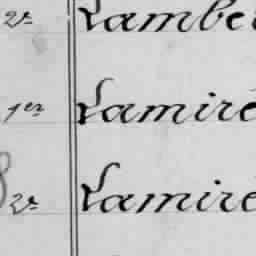 2e Lambe
1er Lamiré
2e Lamiré